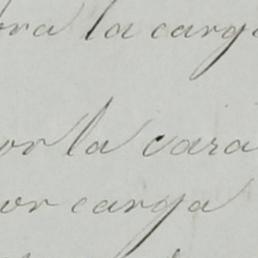 ora la carga
or la cara
or carga